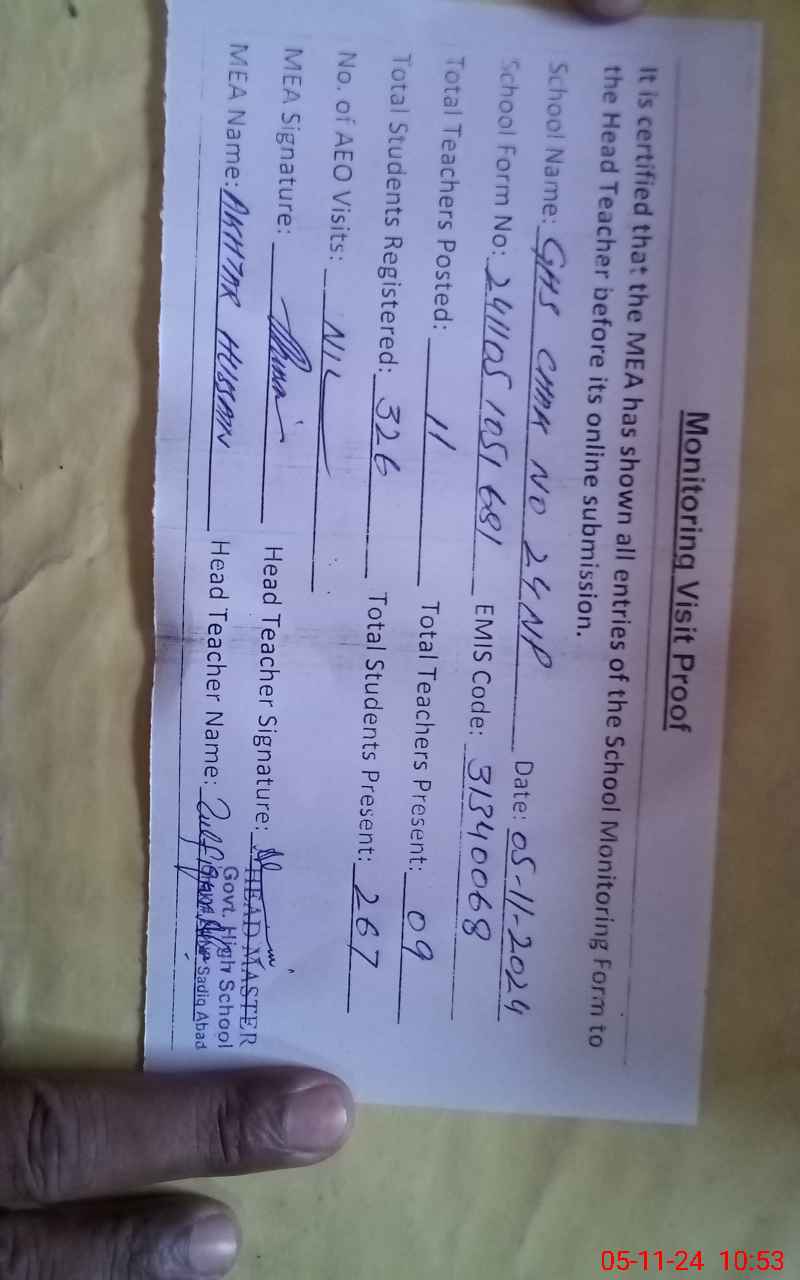 Monitoring Visit Proof
It is certified that the MEA has shown all entries of the School Monitoring Form to
the Head Teacher before its online submission.
School Name: GHS CHAK NO 24 NP Date: 05-11-2024
School Form No: 241105 1051 681 EMIS Code: 31340068
Total Teachers Posted: 11 Total Teachers Present: 09
Total Students Registered: 326 Total Students Present: 267
No. of AEO Visits: NIL
MEA Signature: Head Teacher Signature:
HEAD MASTER
Govt. High School
MEA Name: AKHTAR HUSSAIN Head Teacher Name:
Sadiq Abad
05-11-24 10:53